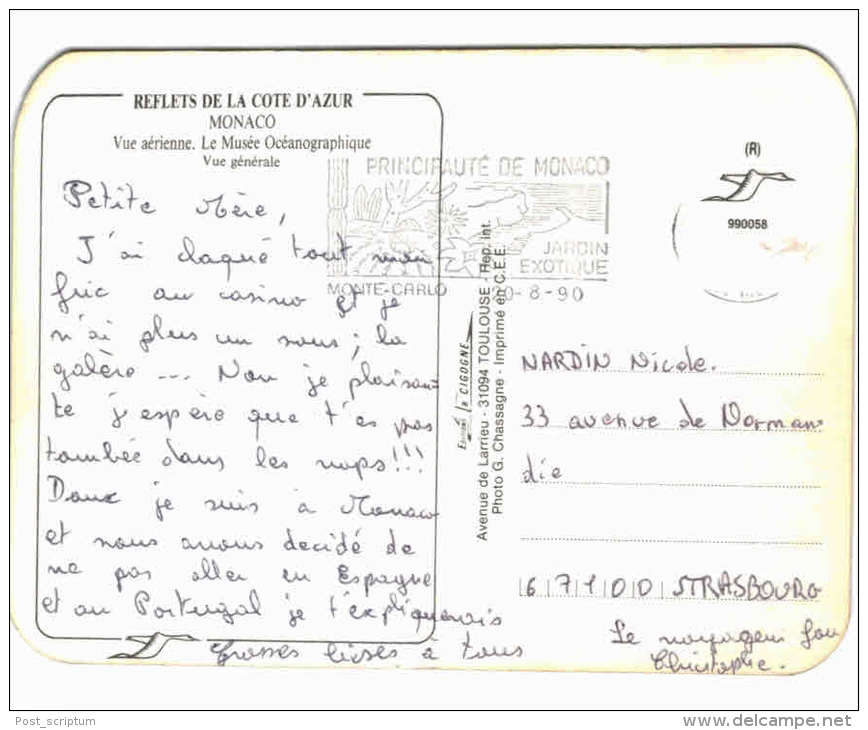 REFLETS DE LA COTE D'AZUR
MONACO
Vue aérienne. Le Musée Océanographique
Vue générale
Petite Mère,
J'ai claqué tout mon
fric au casino et je
n'ai plus un sous ; la
galère ... Non je plaisan
te j'espère que t'es pas
tombée dans les pops!!!
Donc je suis à Monaco
et nous avons decidé de
ne pas aller en Espagne
et au Portugal je t'expliquerais
Grosses bises à tous
PRINCIPAUTÉ DE MONACO
JARDIN
EXOTIQUE
MONTE-CARLO 20-8-90
Editions la CIGOGNE
Avenue de Larrieu - 31094 TOULOUSE - Rep. int.
Photo G. Chassagne - Imprimé en C.E.E.
(R)
990058
NARDIN Nicole.
33 avenue de Norman
die
67100 STRASBOURG
Le voyageur fou
Christophe.
Post_scriptum
delcampe.net